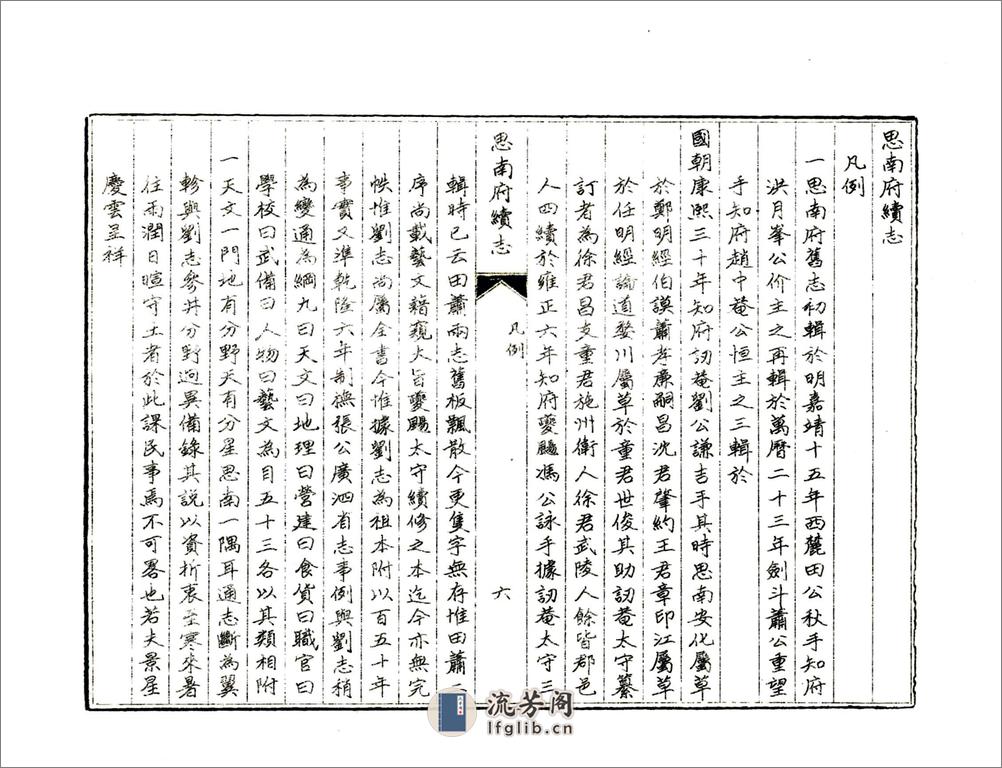 思南府續志
凡例
一思南府舊志初輯於明嘉靖十五年西麓田公秋手知府
洪月峯公价主之再輯於萬曆二十三年劍斗蕭公重望
手知府趙中菴公恒主之三輯於
國朝康熙三十年知府訒菴劉公謙吉手其時思南安化屬草
於鄭明經伯謨蕭孝廉嗣昌沈君肇約王君章印江屬草
於任明經論道婺川屬草於童君世俊其助訒菴太守纂
訂者為徐君昌支童君施州衛人徐君武陵人餘皆郡邑
人四續於雍正六年知府夔颺馮公詠手據訒菴太守三
思南府續志
凡例
六
輯時已云田蕭兩志舊板飄散今更隻字無存惟田蕭二
序尚載藝文籍窺大旨夔颺太守續修之本迄今亦無完
帙惟劉志尚屬全書今惟據劉志為祖本附以百五十年
事實又準乾隆六年制撫張公廣泗省志事例與劉志稍
為變通為綱九曰天文曰地理曰營建曰食貨曰職官曰
學校曰武備曰人物曰藝文為目五十三各以其類相附
一天文一門地有分野天有分星思南一隅耳通志斷為翼
軫與劉志參井分野迥異備錄其說以資折衷至寒來暑
往雨潤日暄守土者於此課民事焉不可畧也若夫景星
慶雲呈祥
流芳阁
lfglib.cn